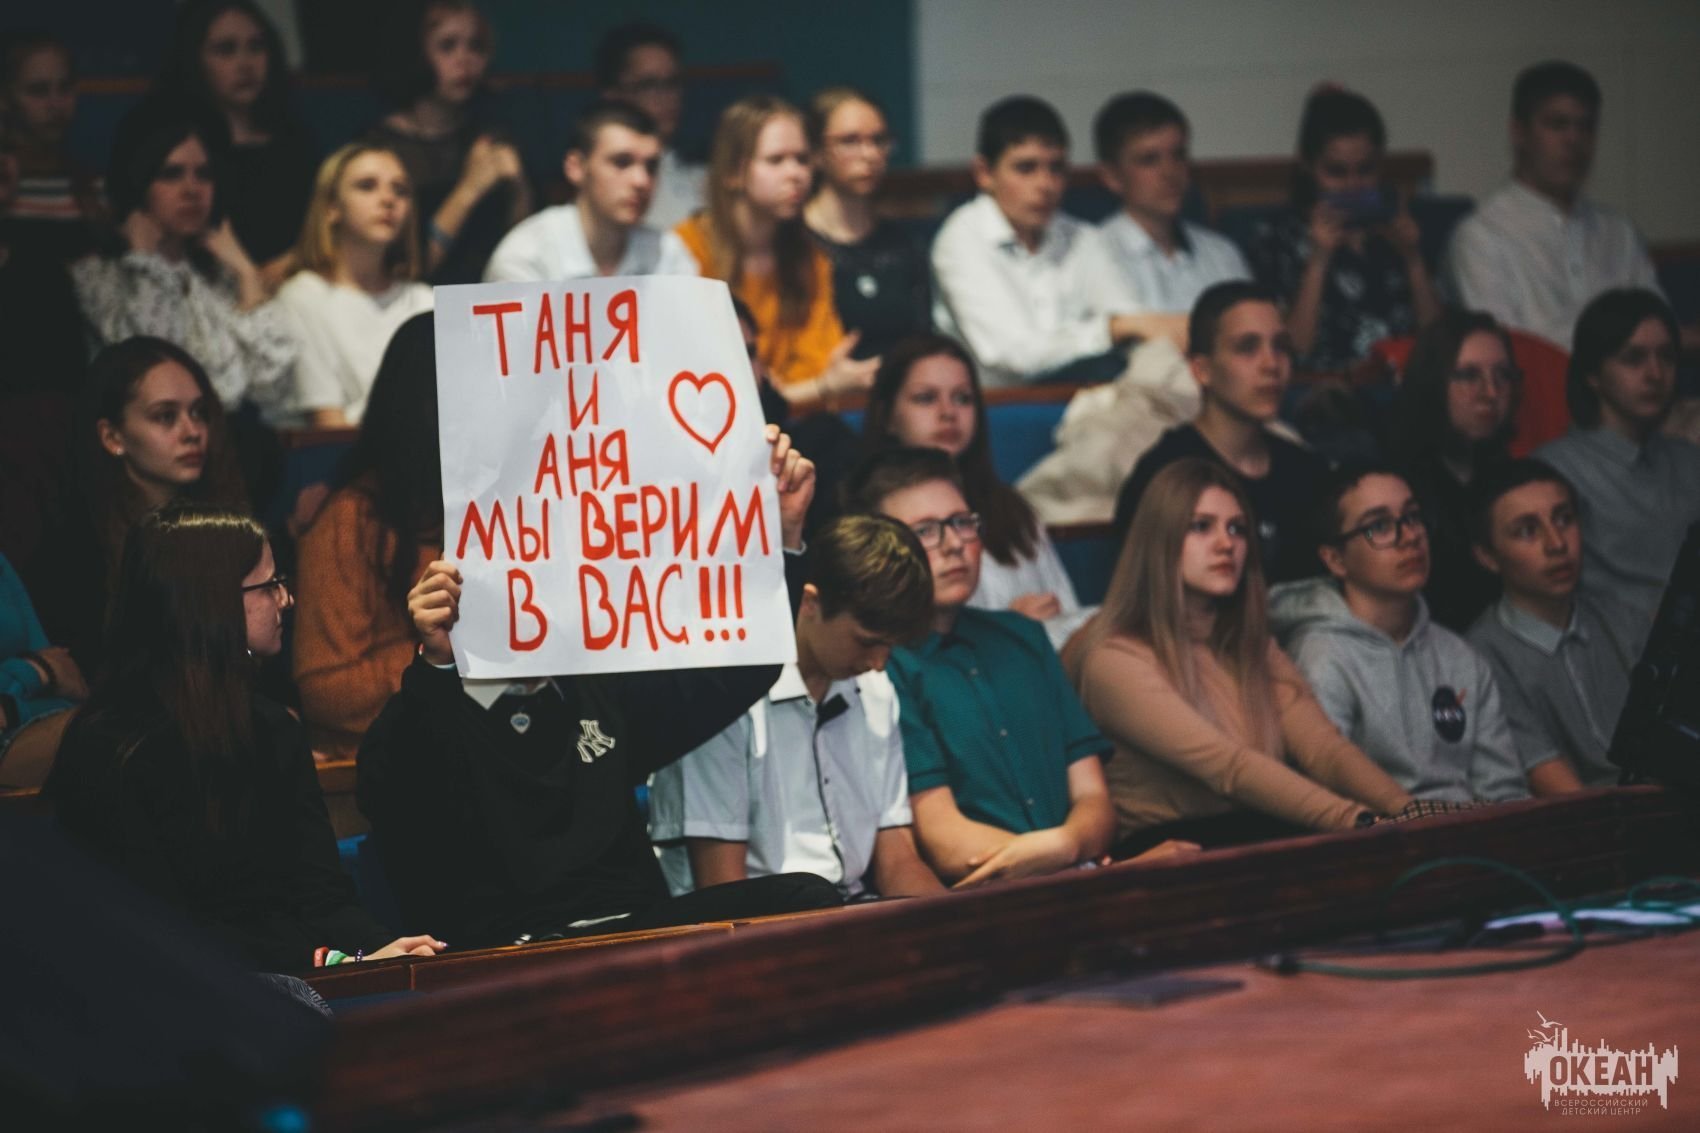 ТАНЯ
И
АНЯ
МЫ ВЕРИМ
В ВАС!!!
ОКЕАН
ВСЕРОССИЙСКИЙ
ДЕТСКИЙ ЦЕНТР